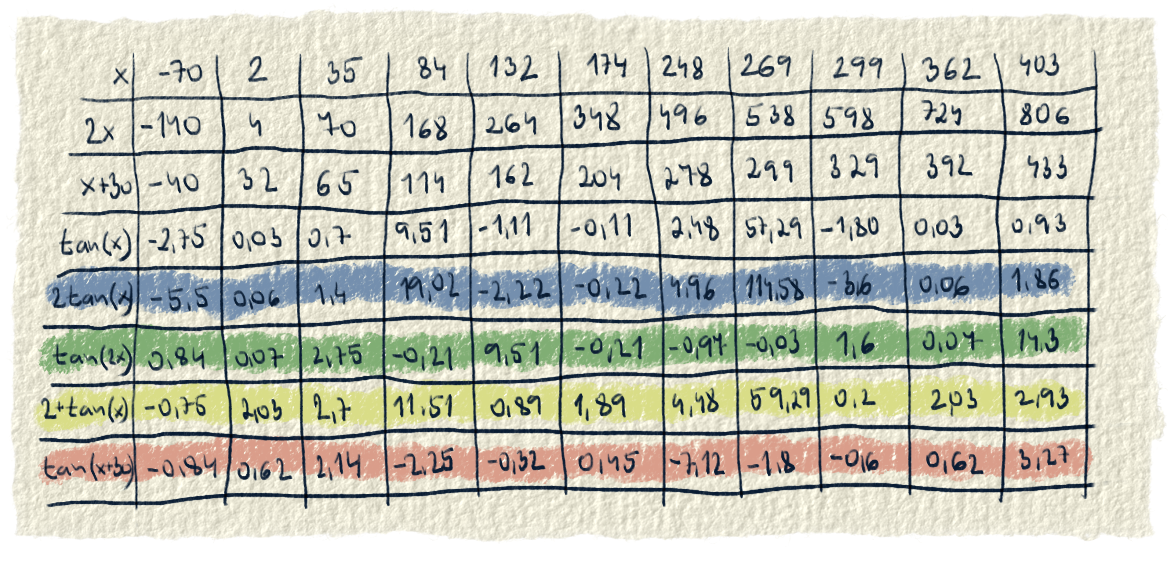 x -70 2 35 84 132 174 248 269 299 362 403
2x -140 4 70 168 264 348 496 538 598 724 806
x+30 -40 32 65 114 162 204 278 299 329 392 433
tan(x) -2,75 0,03 0,7 9,51 -1,11 -0,11 2,48 57,29 -1,80 0,03 0,93
2tan(x) -5,5 0,06 1,4 19,02 -2,22 -0,22 4,96 114,58 -3,6 0,06 1,86
tan(2x) 0,84 0,07 2,75 -0,21 9,51 -0,21 -0,97 -0,03 1,6 0,07 14,3
2+tan(x) -0,75 2,03 2,7 11,51 0,89 1,89 4,48 59,29 0,2 2,03 2,93
tan(x+30) -0,84 0,62 2,14 -2,25 -0,32 0,45 -7,12 -1,8 -0,6 0,62 3,27